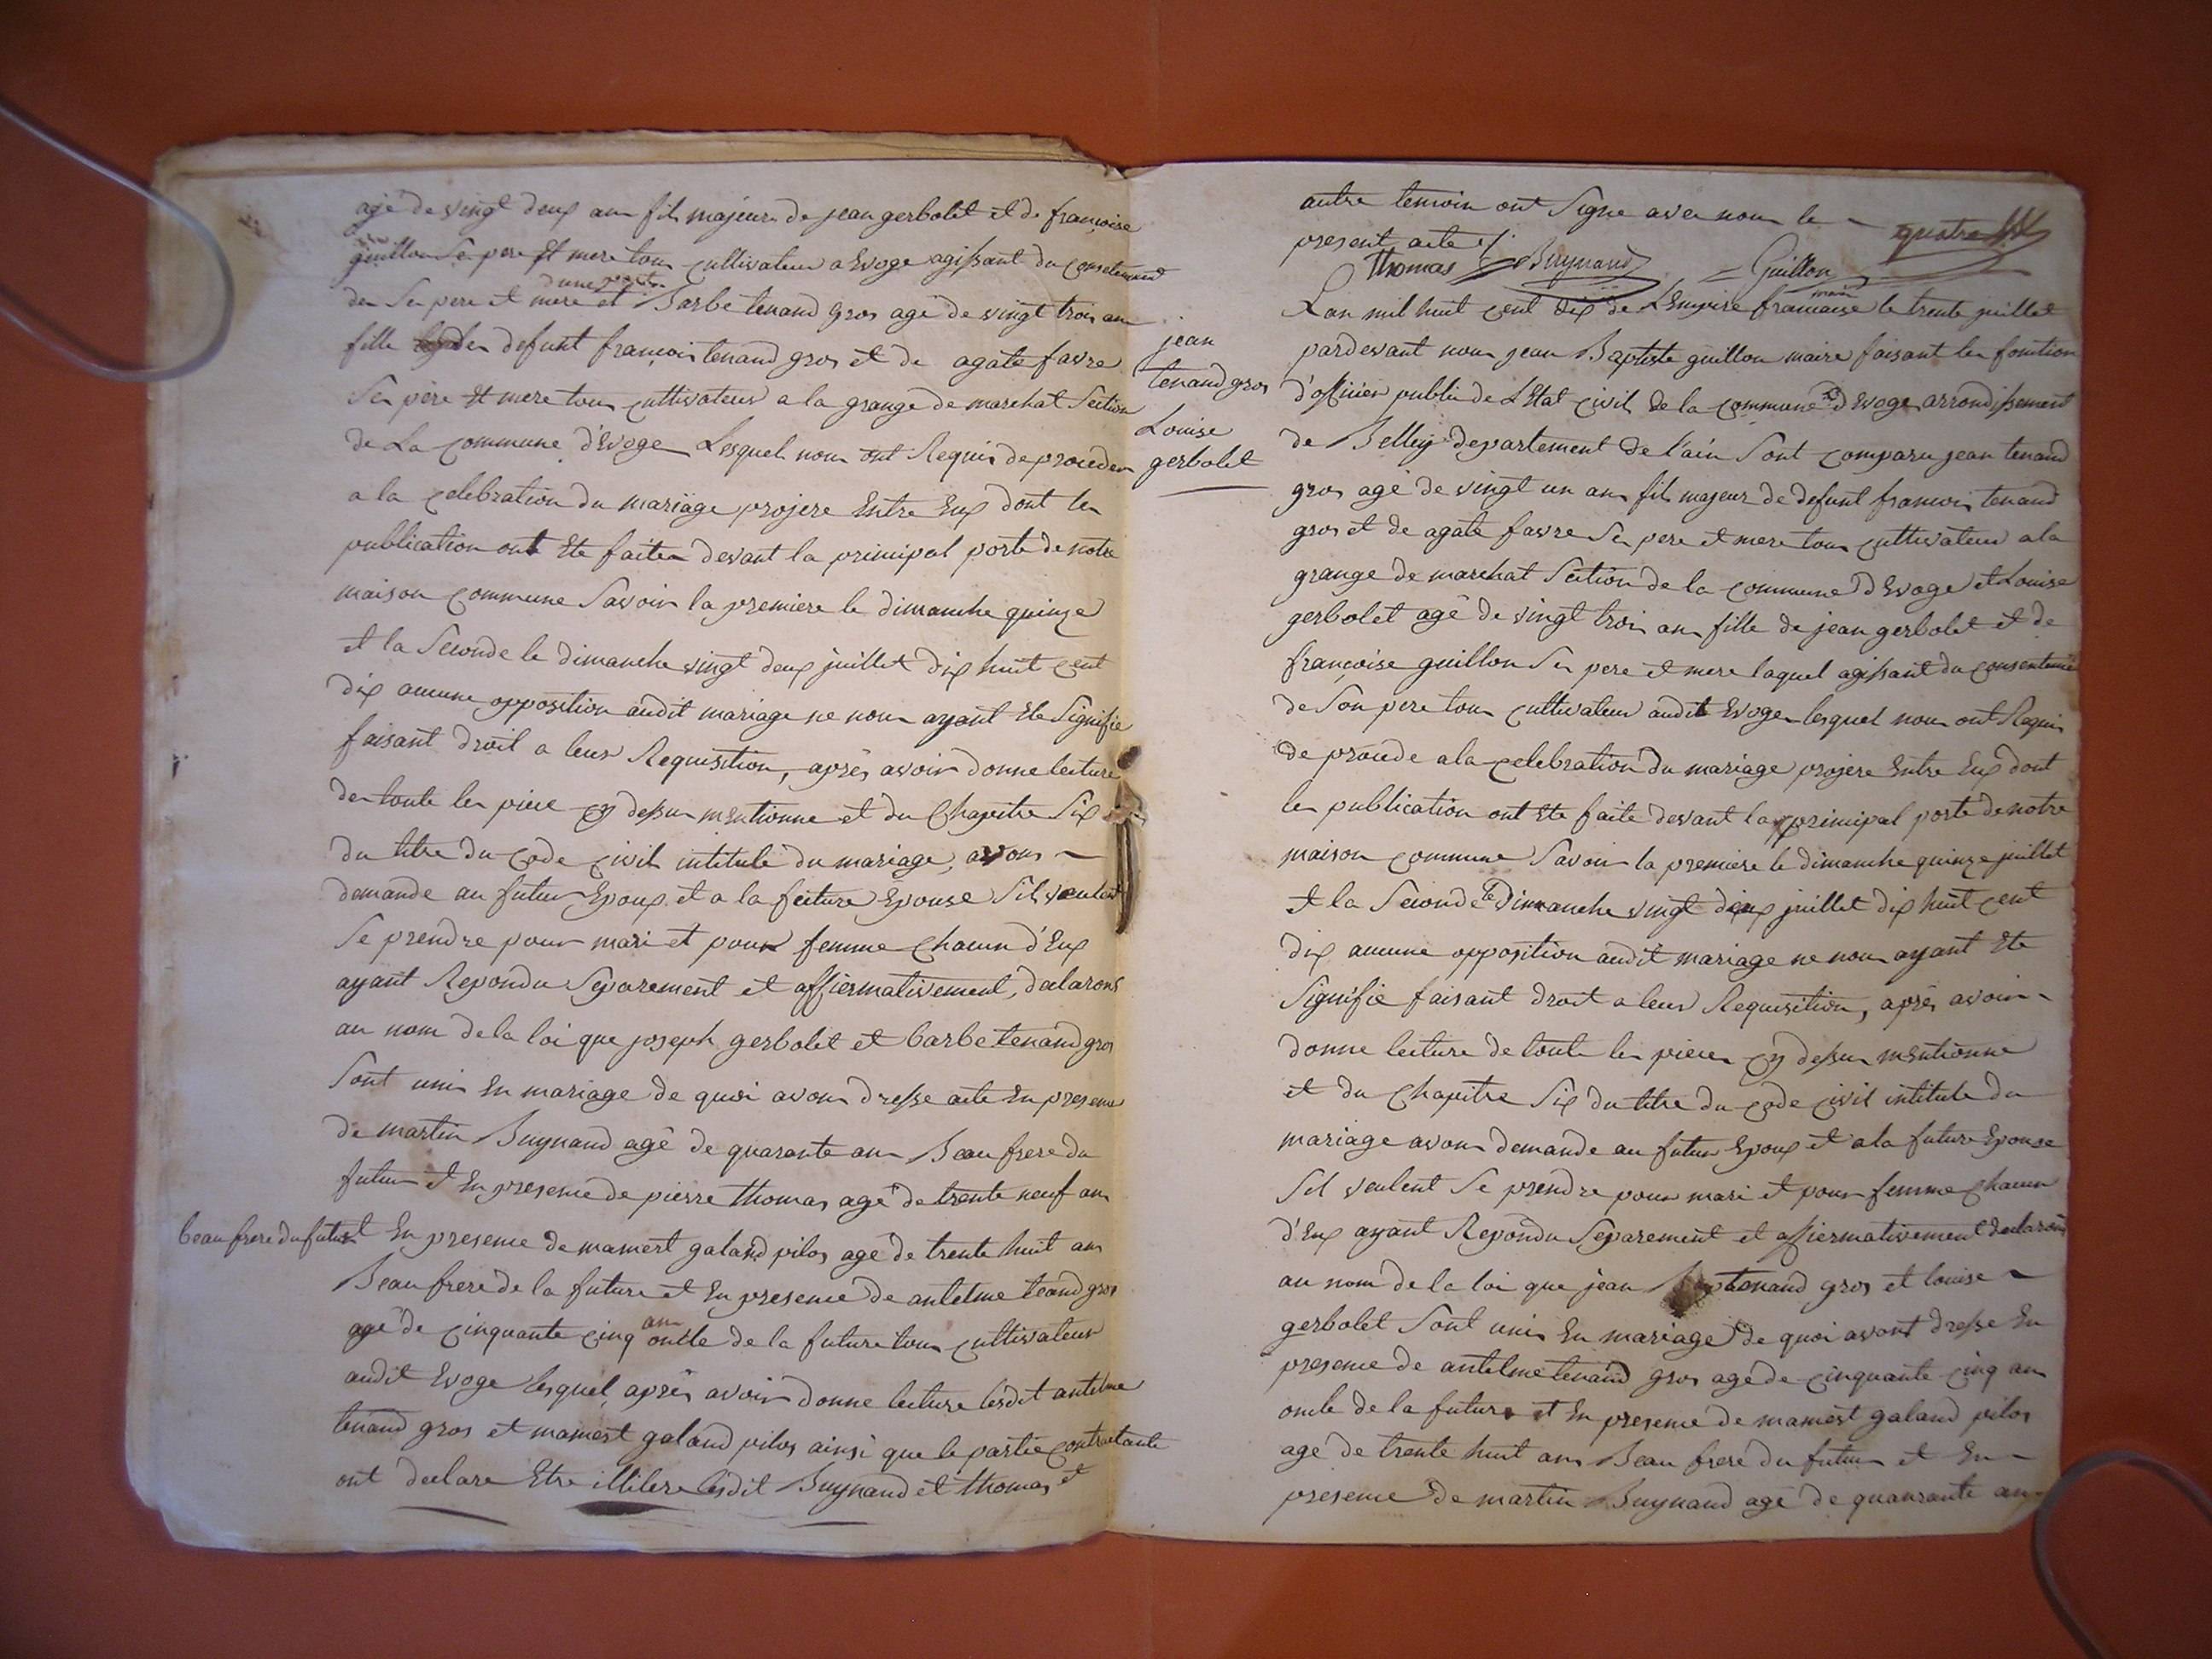 agé de vingt deux an fils majeur de jean gerbolet et de françoise
guillon Ses pere Et mere tous cultivateur a Evoge agissant du consetement
de Ses pere et mere d'une part et Barbe tenand gros agé de vingt trois an
fille de defunt francois tenand gros et de agate favre
Ses père Et mere tous cultivateur a la grange de marchat Section
de La commune d'Evoge Lesquel nous ont Requis de proceder
a la celebration du mariage projere Entre Eux dont les
publication ont Ete faites devant la principal porte de notre
maison commune Savoir la premiere le dimanche quinze
et la Seconde le dimanche vingt deux juillet dix huit cent
dix aucune opposition audit mariage ne nous ayant Ete Signifie
faisant droit a leur Requisition, après avoir donne lecture
de toute les piece cy dessus mentionne et du Chapitre Six
du titre du code civil intitulé du mariage, avons
demande au futur Epoux et a la future Epouse S'ils veulent
Se prendre pour mari et pour femme chacun d'Eux
ayant Repondu Separement et affiermativement, declarons
au nom de la loi que joseph gerbolet et barbe tenand gros
Sont unis En mariage de quoi avons dresse acte En presence
de martin Buynand agé de quarante an Beau frere du
futur et En presence de pierre thomas agé de trente neuf an
beau frere du futur et En presence de mamert galand pilos agé de trente huit an
Beau frere de la future et En presence de antelme teand gros
agé de cinquante cinq an oncle de la future tous cultivateur
audit Evoge lesquel, après avoir donne lecture lesdit antelme
tenand gros et mamert galand pilos ainsi que le partie contractante
ont declare Etre illitere lesdit Buynand et thomas et
jean
tenand gros
Louise
gerbolet
autre temoin ont Signe avec nous le
present acte
quatre
Thomas Buynand Guillon
maire
L'an mil huit cent dix de L'Empire francaise le trente juillet
pardevant nous jean Baptiste guillon maire faisant les fonction
d'officier public de L'Etat civil de la commune d'Evoge arrondissement
de Belley departement de l'ain Sont comparu jean tenand
gros agé de vingt un an fils majeur de defunt francois tenand
gros et de agate favre Ses pere et mere tous cultivateur a la
grange de marchat Section de la commune d'Evoge et Louise
gerbolet agé de vingt trois an fille de jean gerbolet et de
françoise guillon Ses pere et mere laquel agissant du consenteme
de Son pere tous cultivateur audit Evoge lesquel nous ont Requis
de procede a la celebration du mariage projere Entre Eux dont
les publication ont Ete faite devant la principal porte de notre
maison commune Savoir la premiere le dimanche quinze juillet
et la Seconde le Dimanche vingt deux juillet dix huit cent
dix aucune opposition audit mariage ne nous ayant Ete
Signifie faisant droit a leur Requisition, après avoir
donne lecture de toute les pieces cy dessus mentionne
et du Chapitre Six du titre du code civil intitule du
mariage avons demande au futur Epoux et a la future Epouse
S'il veulent Se prendre pour mari et pour femme chacun
d'Eux ayant Repondu Separement et affiermativement declarons
au nom de la loi que jean tenand gros et louise
gerbolet Sont unis En mariage de quoi avont dresse En
presence de antelme tenand gros agé de cinquante cinq an
oncle de la future et En presence de mamert galand pilos
agé de trente huit an Beau frere du futur et En
presence de martin Buynand agé de quanrante an